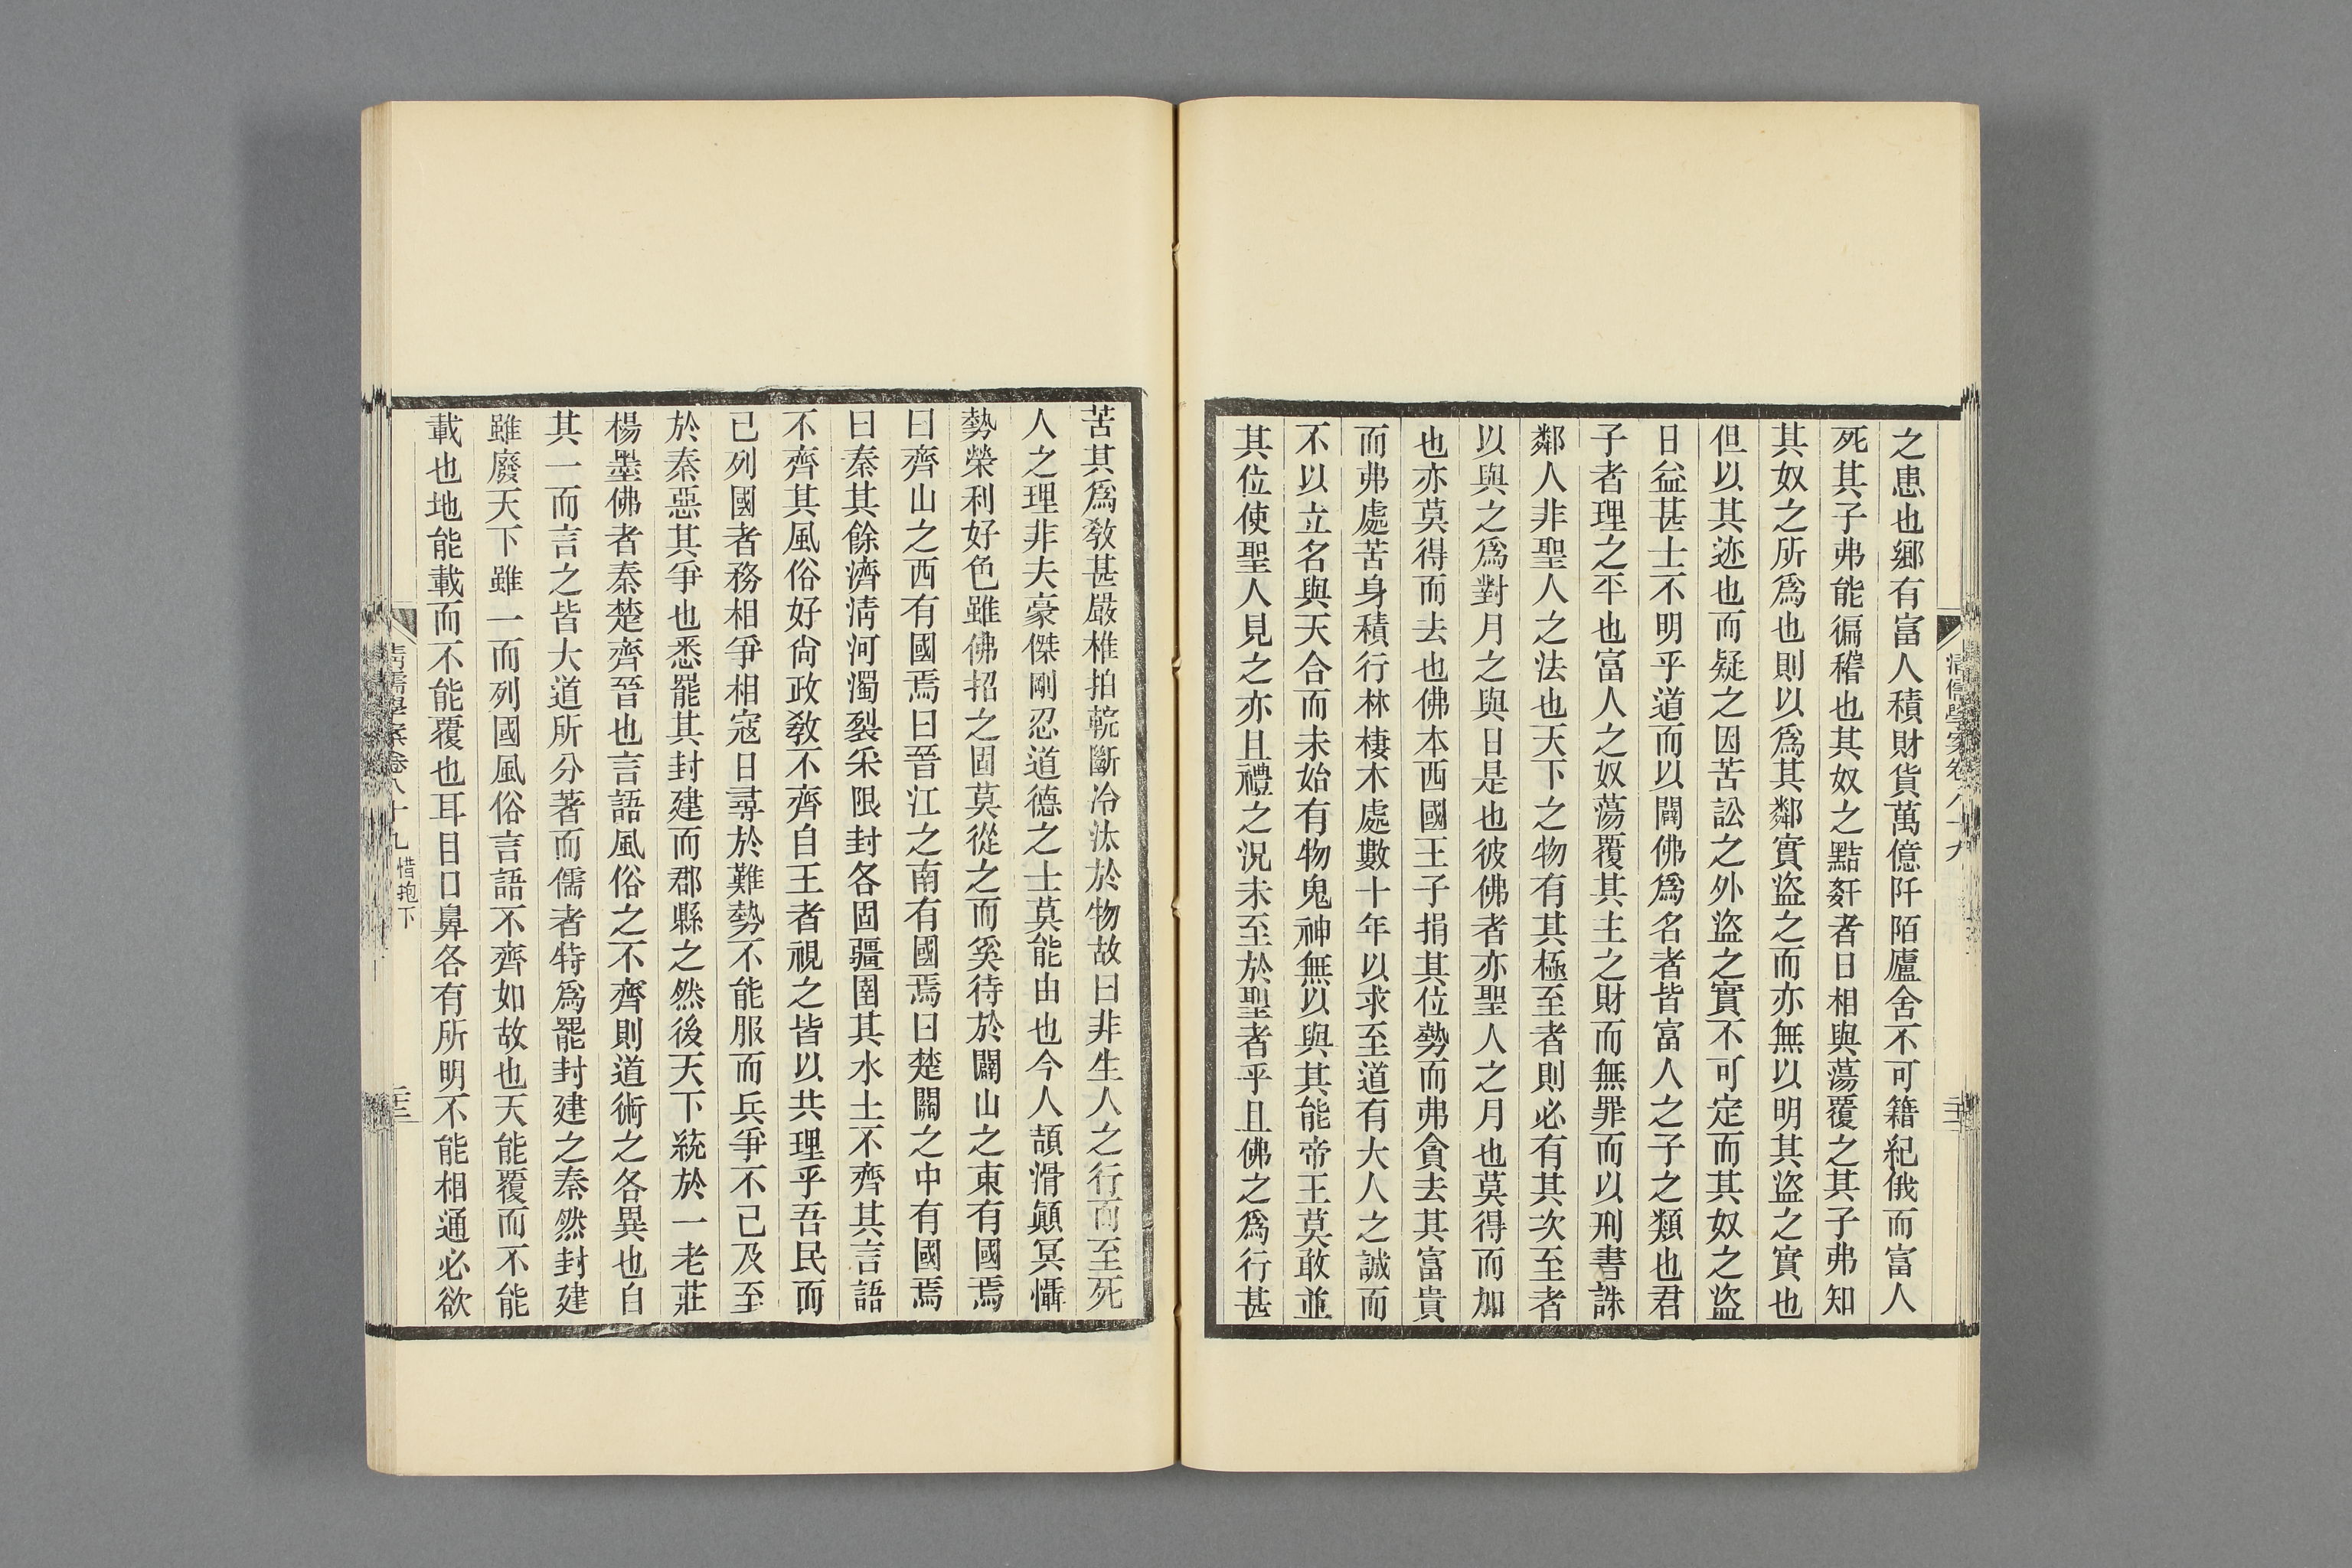 之患也鄉有富人積財貨萬億阡陌廬舍不可籍紀俄而富人
死其子弗能徧稽也其奴之黠姧者日相與蕩覆之其子弗知
其奴之所爲也則以爲其鄰實盜之而亦無以明其盜之實也
但以其迹也而疑之因苦訟之外盜之實不可定而其奴之盜
日益甚士不明乎道而以闢佛爲名者皆富人之子之類也君
子者理之平也富人之奴蕩覆其主之財而無罪而以刑書誅
鄰人非聖人之法也天下之物有其極至者則必有其次至者
以與之爲對月之與日是也彼佛者亦聖人之月也莫得而加
也亦莫得而去也佛本西國王子捐其位勢而弗貪去其富貴
而弗處苦身積行林棲木處數十年以求至道有大人之誠而
不以立名與天合而未始有物鬼神無以與其能帝王莫敢並
其位使聖人見之亦且禮之況未至於聖者乎且佛之爲行甚
苦其爲敎甚嚴椎拍輐斷冷汰於物故曰非生人之行而至死
人之理非夫豪傑剛忍道德之士莫能由也今人頡滑顚冥懾
勢榮利好色雖佛招之固莫從之而奚待於闢山之東有國焉
曰齊山之西有國焉曰晉江之南有國焉曰楚關之中有國焉
曰秦其餘濟淸河濁裂采限封各固疆圉其水土不齊其言語
不齊其風俗好尙政敎不齊自王者視之皆以共理乎吾民而
已列國者務相爭相寇日尋於難勢不能服而兵爭不已及至
於秦惡其爭也悉罷其封建而郡縣之然後天下統於一老莊
楊墨佛者秦楚齊晉也言語風俗之不齊則道術之各異也自
其一而言之皆大道所分著而儒者特爲罷封建之秦然封建
雖廢天下雖一而列國風俗言語不齊如故也天能覆而不能
載也地能載而不能覆也耳目口鼻各有所明不能相通必欲
淸儒學案卷八十九 惜抱下